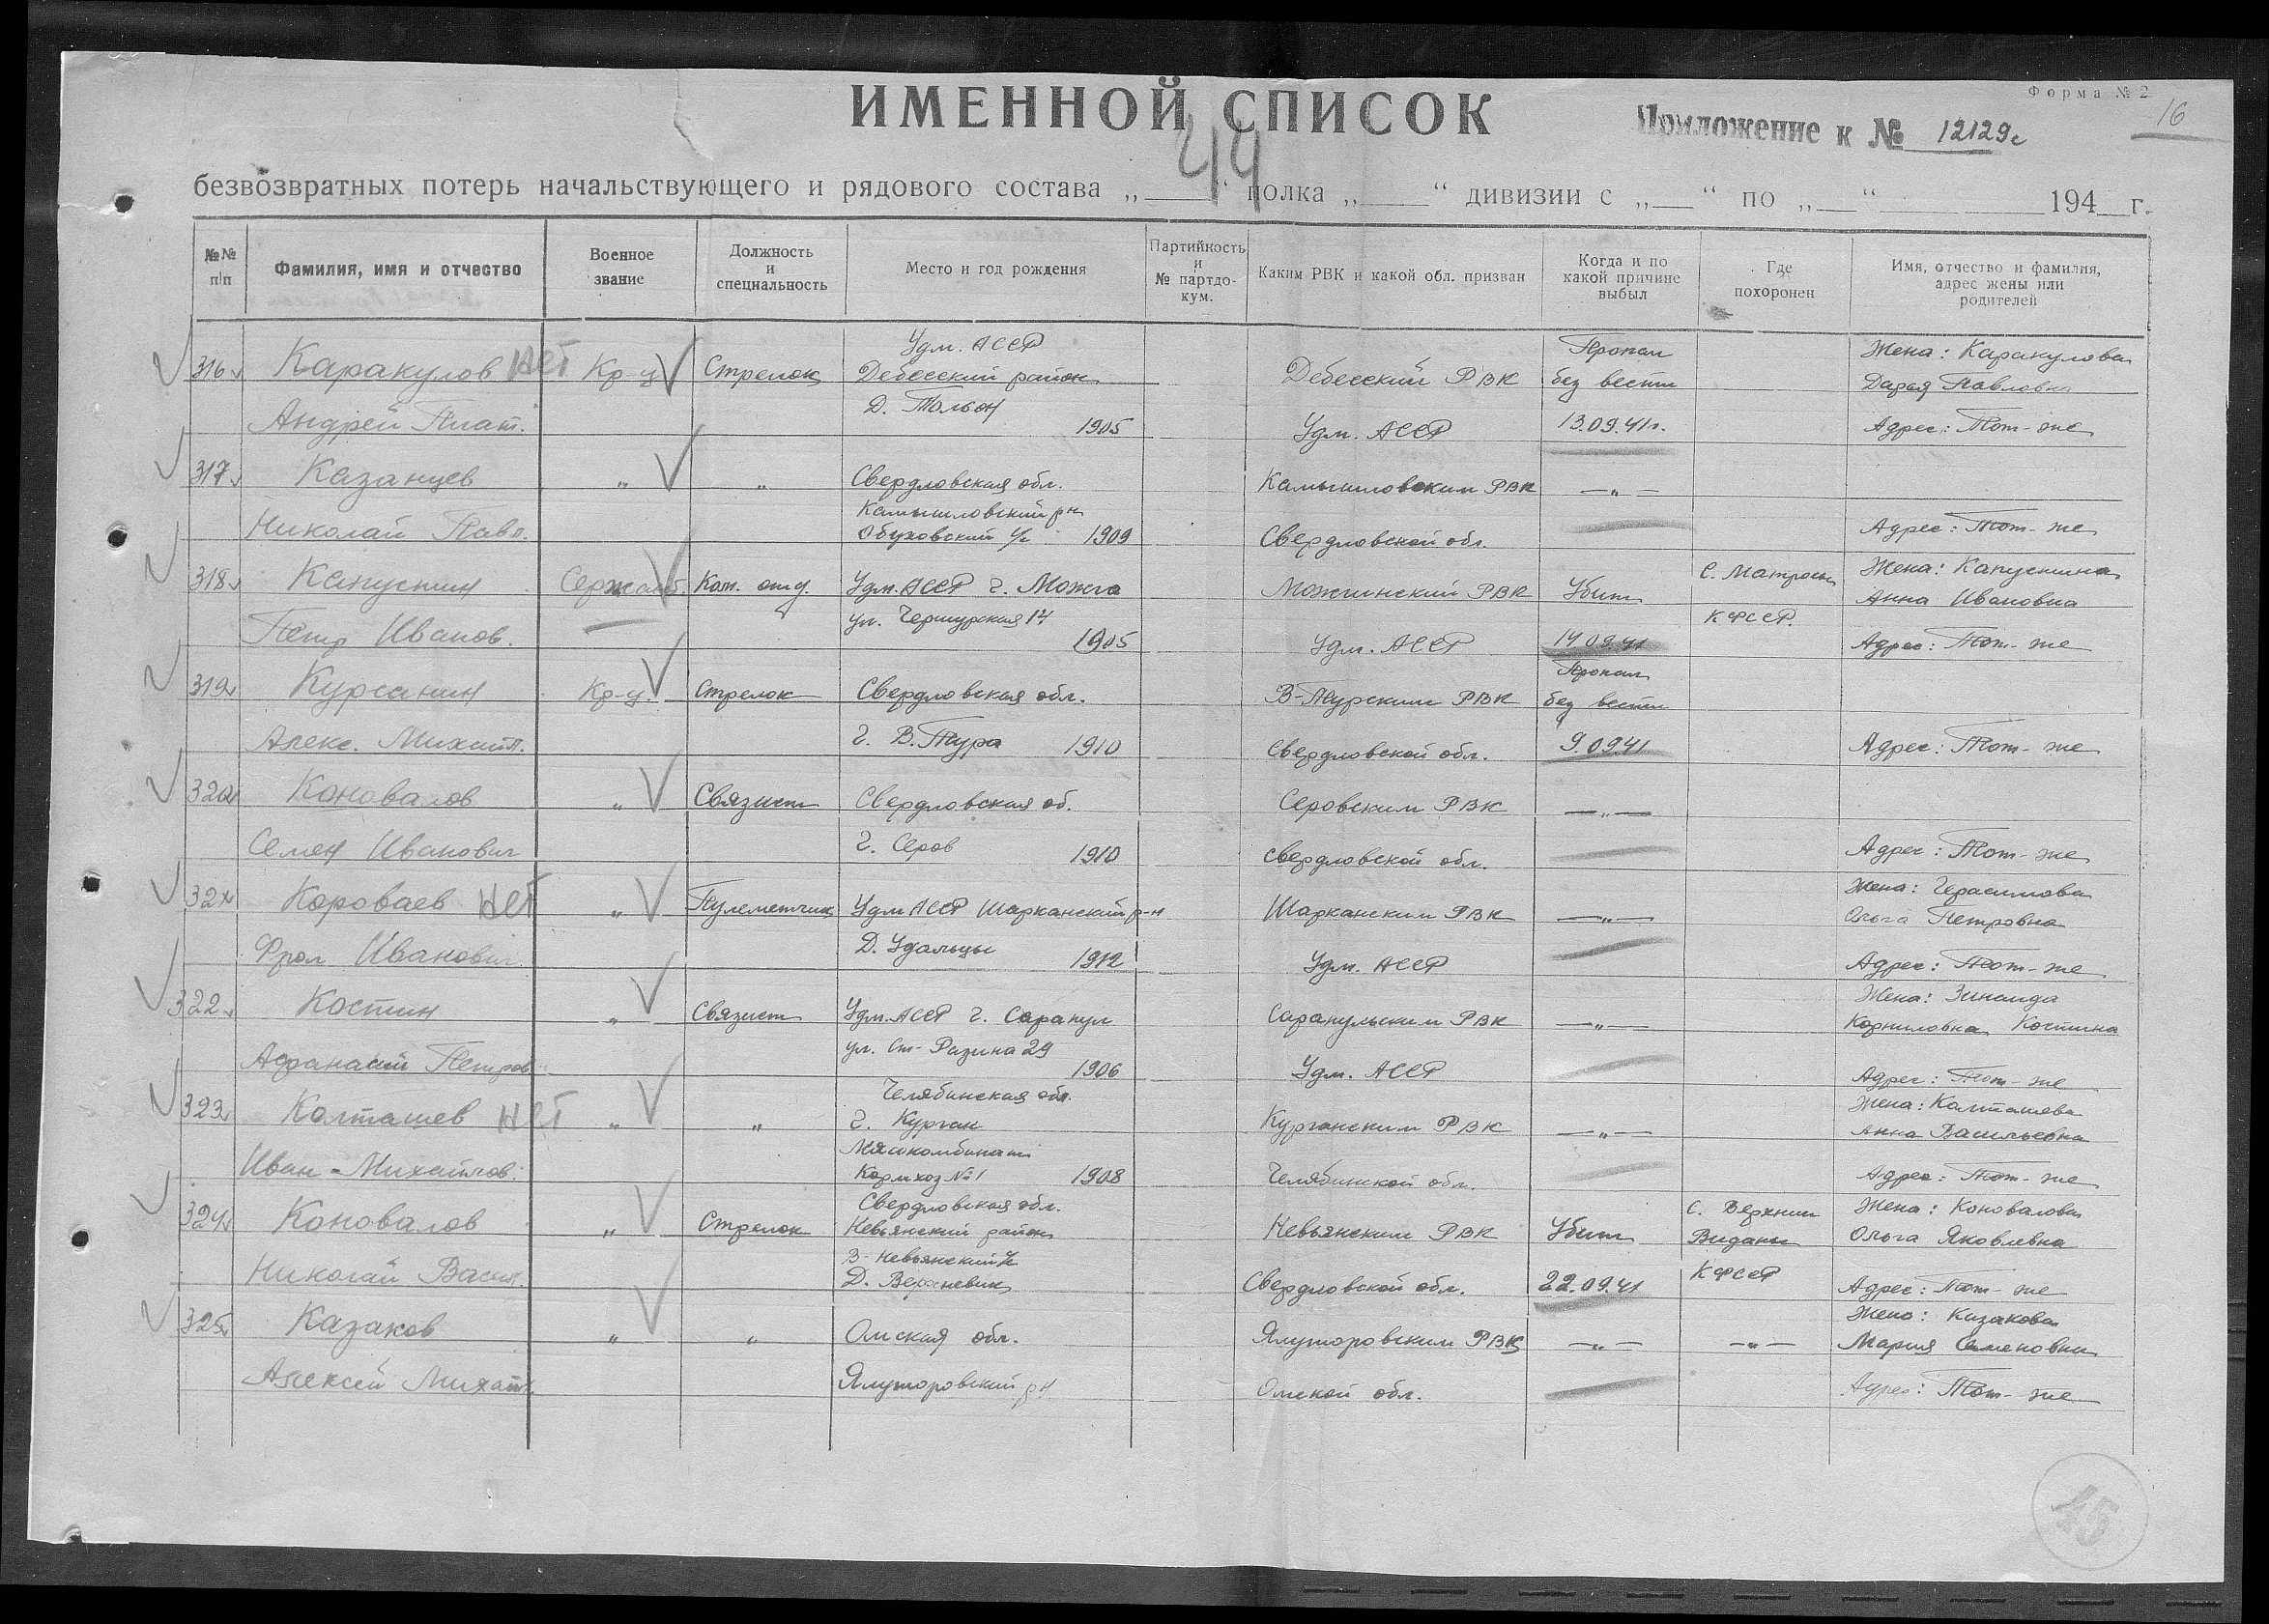 Форма № 2
16
ИМЕННОЙ СПИСОК
Приложение к № 12129с
44
безвозвратных потерь начальствующего и рядового состава „ “ полка „ “ дивизии с „ “ по „ “ 194 г.
№№ п/п
Фамилия, имя и отчество
Военное звание
Должность и специальность
Место и год рождения
Партийность и № партдокум.
Каким РВК и какой обл. призван
Когда и по какой причине выбыл
Где похоронен
Имя, отчество и фамилия, адрес жены или родителей
Удм. АССР Пропал Жена: Каракулова
316 Каракулов нет Кр-ц Стрелок Дебесский район Дебесский РВК без вести Дарья Павловна
Андрей Плат. Д. 1905 Удм. АССР 13.09.41г. Адрес: Тот-же
317 Казанцев „ „ Свердловская обл. Камышловским РВК —„—
Камышловский рн
Николай Павл. Обуховский с/с 1909 Свердловской обл. Адрес: Тот-же
С. Матросы Жена: Капустина
318 Капустин Сержант Ком. отд. Удм. АССР г. Можга Можгинский РВК Убит Анна Ивановна
ул. 17 КФССР.
Петр Иванов. 1905 Удм. АССР 14.09.41 Адрес: Тот-же
Пропал
319 Курсанин Кр-ц. Стрелок Свердловская обл. В-Турским РВК без вести
Алекс. Михайл. г. В.Тура 1910 Свердловской обл. 9.09.41 Адрес: Тот-же
320 Коновалов „ Связист Свердловская об. Серовским РВК —„—
Семен Иванович г. Серов 1910 Свердловской обл. Адрес: Тот-же
Жена: Герасимова
321 Короваев нет „ Пулеметчик Удм АССР Шарканский р-н Шарканским РВК —„— Ольга Петровна
Фрол Иванович Д. Удальцы 1912 Удм. АССР Адрес: Тот-же
Жена: Зинаида
322 Костин „ Связист Удм. АССР г. Сарапул Сарапульским РВК —„— Корниловна Костина
Афанасий Петров. ул. Ст-Разина 29 1906 Удм. АССР Адрес: Тот-же
Челябинская обл. Жена: Колташева
323 Колташев нет „ „ г. Курган Курганским РВК —„— Анна Васильевна
Мясокомбинат
Иван-Михайлов. Кормхоз №1 1908 Челябинской обл. Адрес: Тот-же
Свердловская обл. С. Верхние Жена: Коновалова
324 Коновалов „ Стрелок Невьянский район Невьянским РВК Убит Виданы Ольга Яковлевна
В-Невьянский КФССР
Николай Васил. Д. Свердловской обл. 22.09.41 Адрес: Тот-же
Жена: Казакова
325 Казаков „ „ Омская обл. Ялуторовским РВК —„— —„— Мария Семеновна
Алексей Михайл. Ялуторовский рн Омской обл. Адрес: Тот-же
15